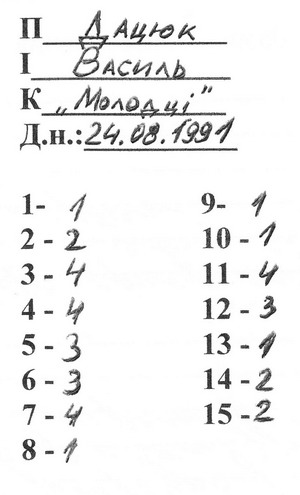 П Дацюк
І Василь
К „Молодці"
Д.н.: 24.08.1991
1- 1
2 - 2
3 - 4
4 - 4
5 - 3
6 - 3
7 - 4
8 - 1
9- 1
10 - 1
11 - 4
12 - 3
13 - 1
14 - 2
15 - 2